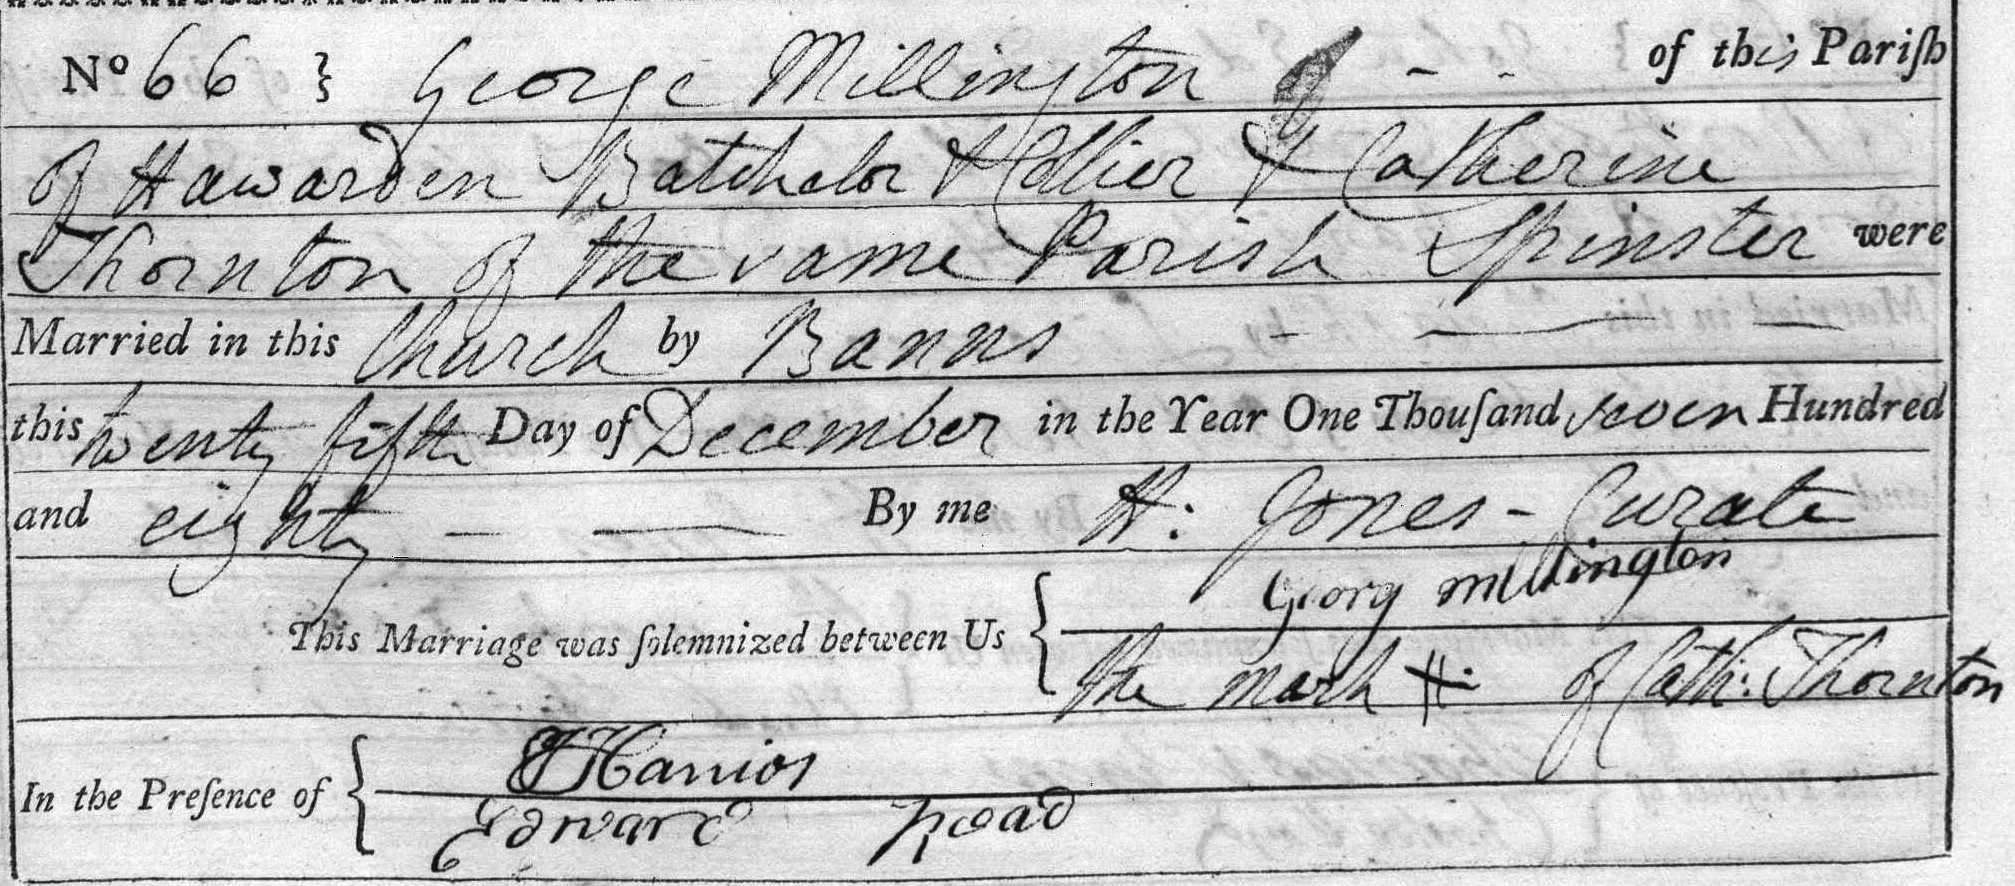 No 66 } George Millington - - of this Pariſh
of Hawarden Batchelor & Collier & Catherine
Thornton of the same Parish Spinster were
Married in this Church by Banns - — —
this twenty fifth Day of December in the Year One Thouſand seven Hundred
and eighty — — By me H: Jones - Curate
Georg millington
This Marriage was ſolemnized between Us {
the mark of Cath: Thornton
In the Preſence of {
Edward